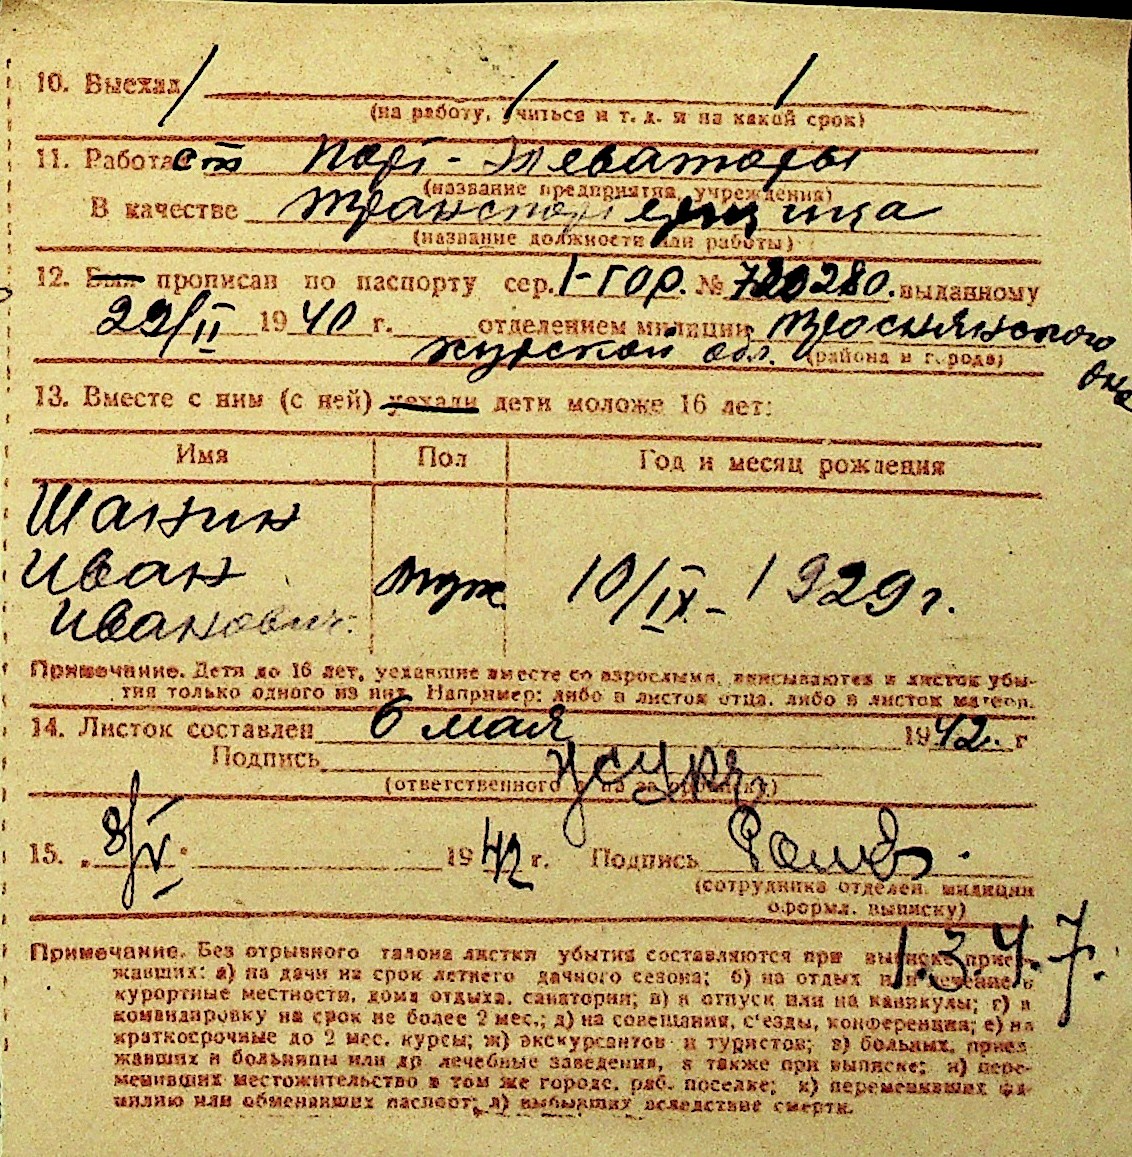 10. Выехал
(на работу, учиться и т. д. и на какой срок)
11. Работает Порт-Элеваторы
(название предприятия, учреждения)
В качестве транспортерщика
(название должности или работы)
12. Был прописан по паспорту сер. 1-гор. № 720280. выданному
29/II 1940 г. отделением милиции Троснянского
Курской обл. (района и города)
13. Вместе с ним (с ней) уехали дети моложе 16 лет:
Имя Пол Год и месяц рождения
Шанин
Иван муж 10/IX-1929 г.
Иванович.
Примечание. Дети до 16 лет, уехавшие вместе со взрослыми, вписываются в листок убы-
тия только одного из них. Например: либо в листок отца, либо в листок матери.
14. Листок составлен 6 мая 1942. г
Подпись
(ответственного за прописку)
15. „8/V" 1942 г. Подпись
(сотрудника отделен. милиции
оформл. выписку)
1.3.4.7.
Примечание. Без отрывного талона листки убытия составляются при выписке приез-
жавших: а) на дачи на срок летнего дачного сезона; б) на отдых или лечение в
курортные местности, дома отдыха, санатории; в) в отпуск или на каникулы; г) в
командировку на срок не более 2 мес.; д) на совещания, с'езды, конференции; е) на
краткосрочные до 2 мес. курсы; ж) экскурсантов и туристов; з) больных, приез
жавших в больницы или др лечебные заведения, а также при выписке; и) пере-
менивших местожительство в том же городе, раб. поселке; к) переменивших фа-
милию или обменявших паспорт; л) выбывших вследствие смерти.